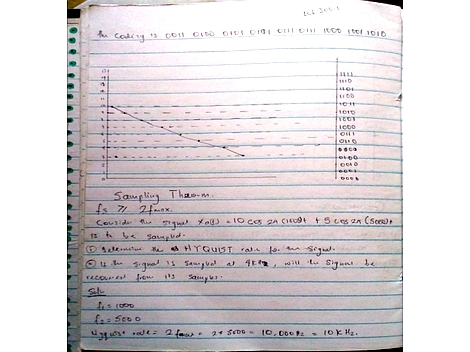 the Coding is 0011 0100 0101 0101 0111 0111 1000 1001 1010
1111
1110
1101
1100
1011
1010
1001
1000
0111
0110
0100
0010
Sampling Theorem.
fs ≥ 2fmax.
Consider the signal Xa(t) = 10 cos 2π(1000)t + 5 cos 2π(5000)t
is to be sampled.
① Determine the NYQUIST rate for the signal.
② If the signal is sampled at 4KHz, will the signal be
recovered from its samples.
Soln
f₁ = 1000
f₂ = 5000
Nyquist rate = 2fmax = 2 * 5000 = 10,000Hz = 10KHz.